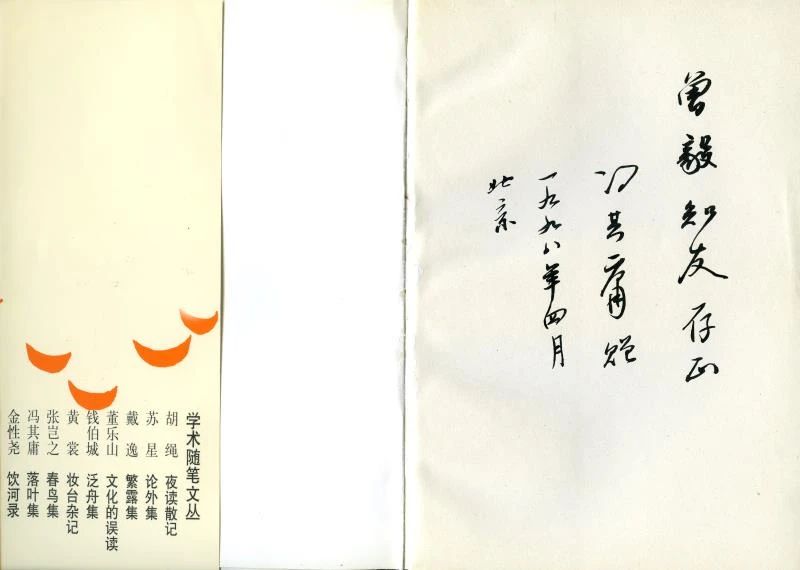 曾毅知友存正
冯其庸赠
一九九八年四月
北京
学术随笔文丛
胡绳 夜读散记
苏星 论外集
戴逸 繁露集
董乐山 文化的误读
钱伯城 泛舟集
黄裳 妆台杂记
张岂之 春鸟集
冯其庸 落叶集
金性尧 饮河录